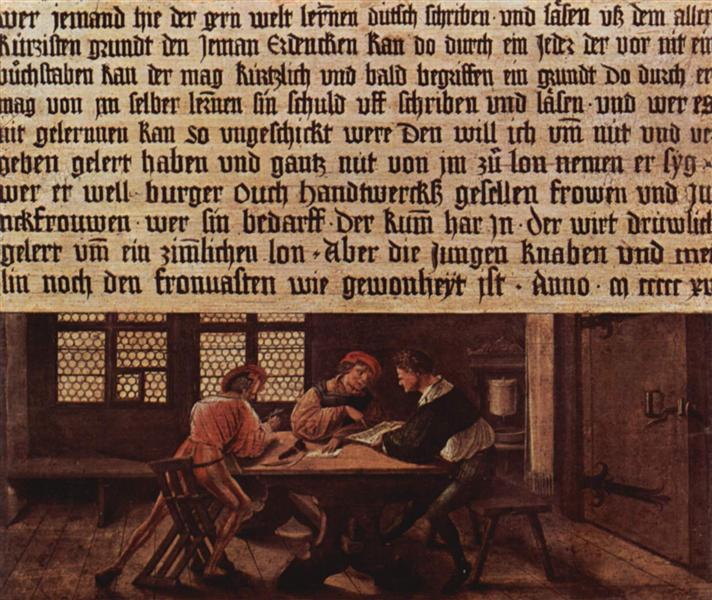 wer jemand hie der gern welt lernen dütsch schriben vnd läsen vß dem aller
kürzisten grundt den Jeman Erdencken kan do durch ein Jeder der vor nit ein
bůchstaben kan der mag kürtzlich vnd bald begriffen ein grundt do durch er
mag von jm selber lernen sin schuld vff schriben vnd läsen · vnd wer es
nit gelernnen kan so vngeschickt were Den will ich vm̄ nüt vnd ver
geben gelert haben vnd gantz nüt von jm zů lon nemen er syg ·
wer er well · burger Ouch handtwerckß gesellen frowen vnd Ju
nckfrouwen · wer sin bedarff · Der kum̄ har jn · der wirt drüwlich
gelert vm̄ ein zim̄lichen lon · Aber die Jungen knaben vnd mei
lin noch den fronuasten wie gewonheyt ist · Anno · m ccccc xvi